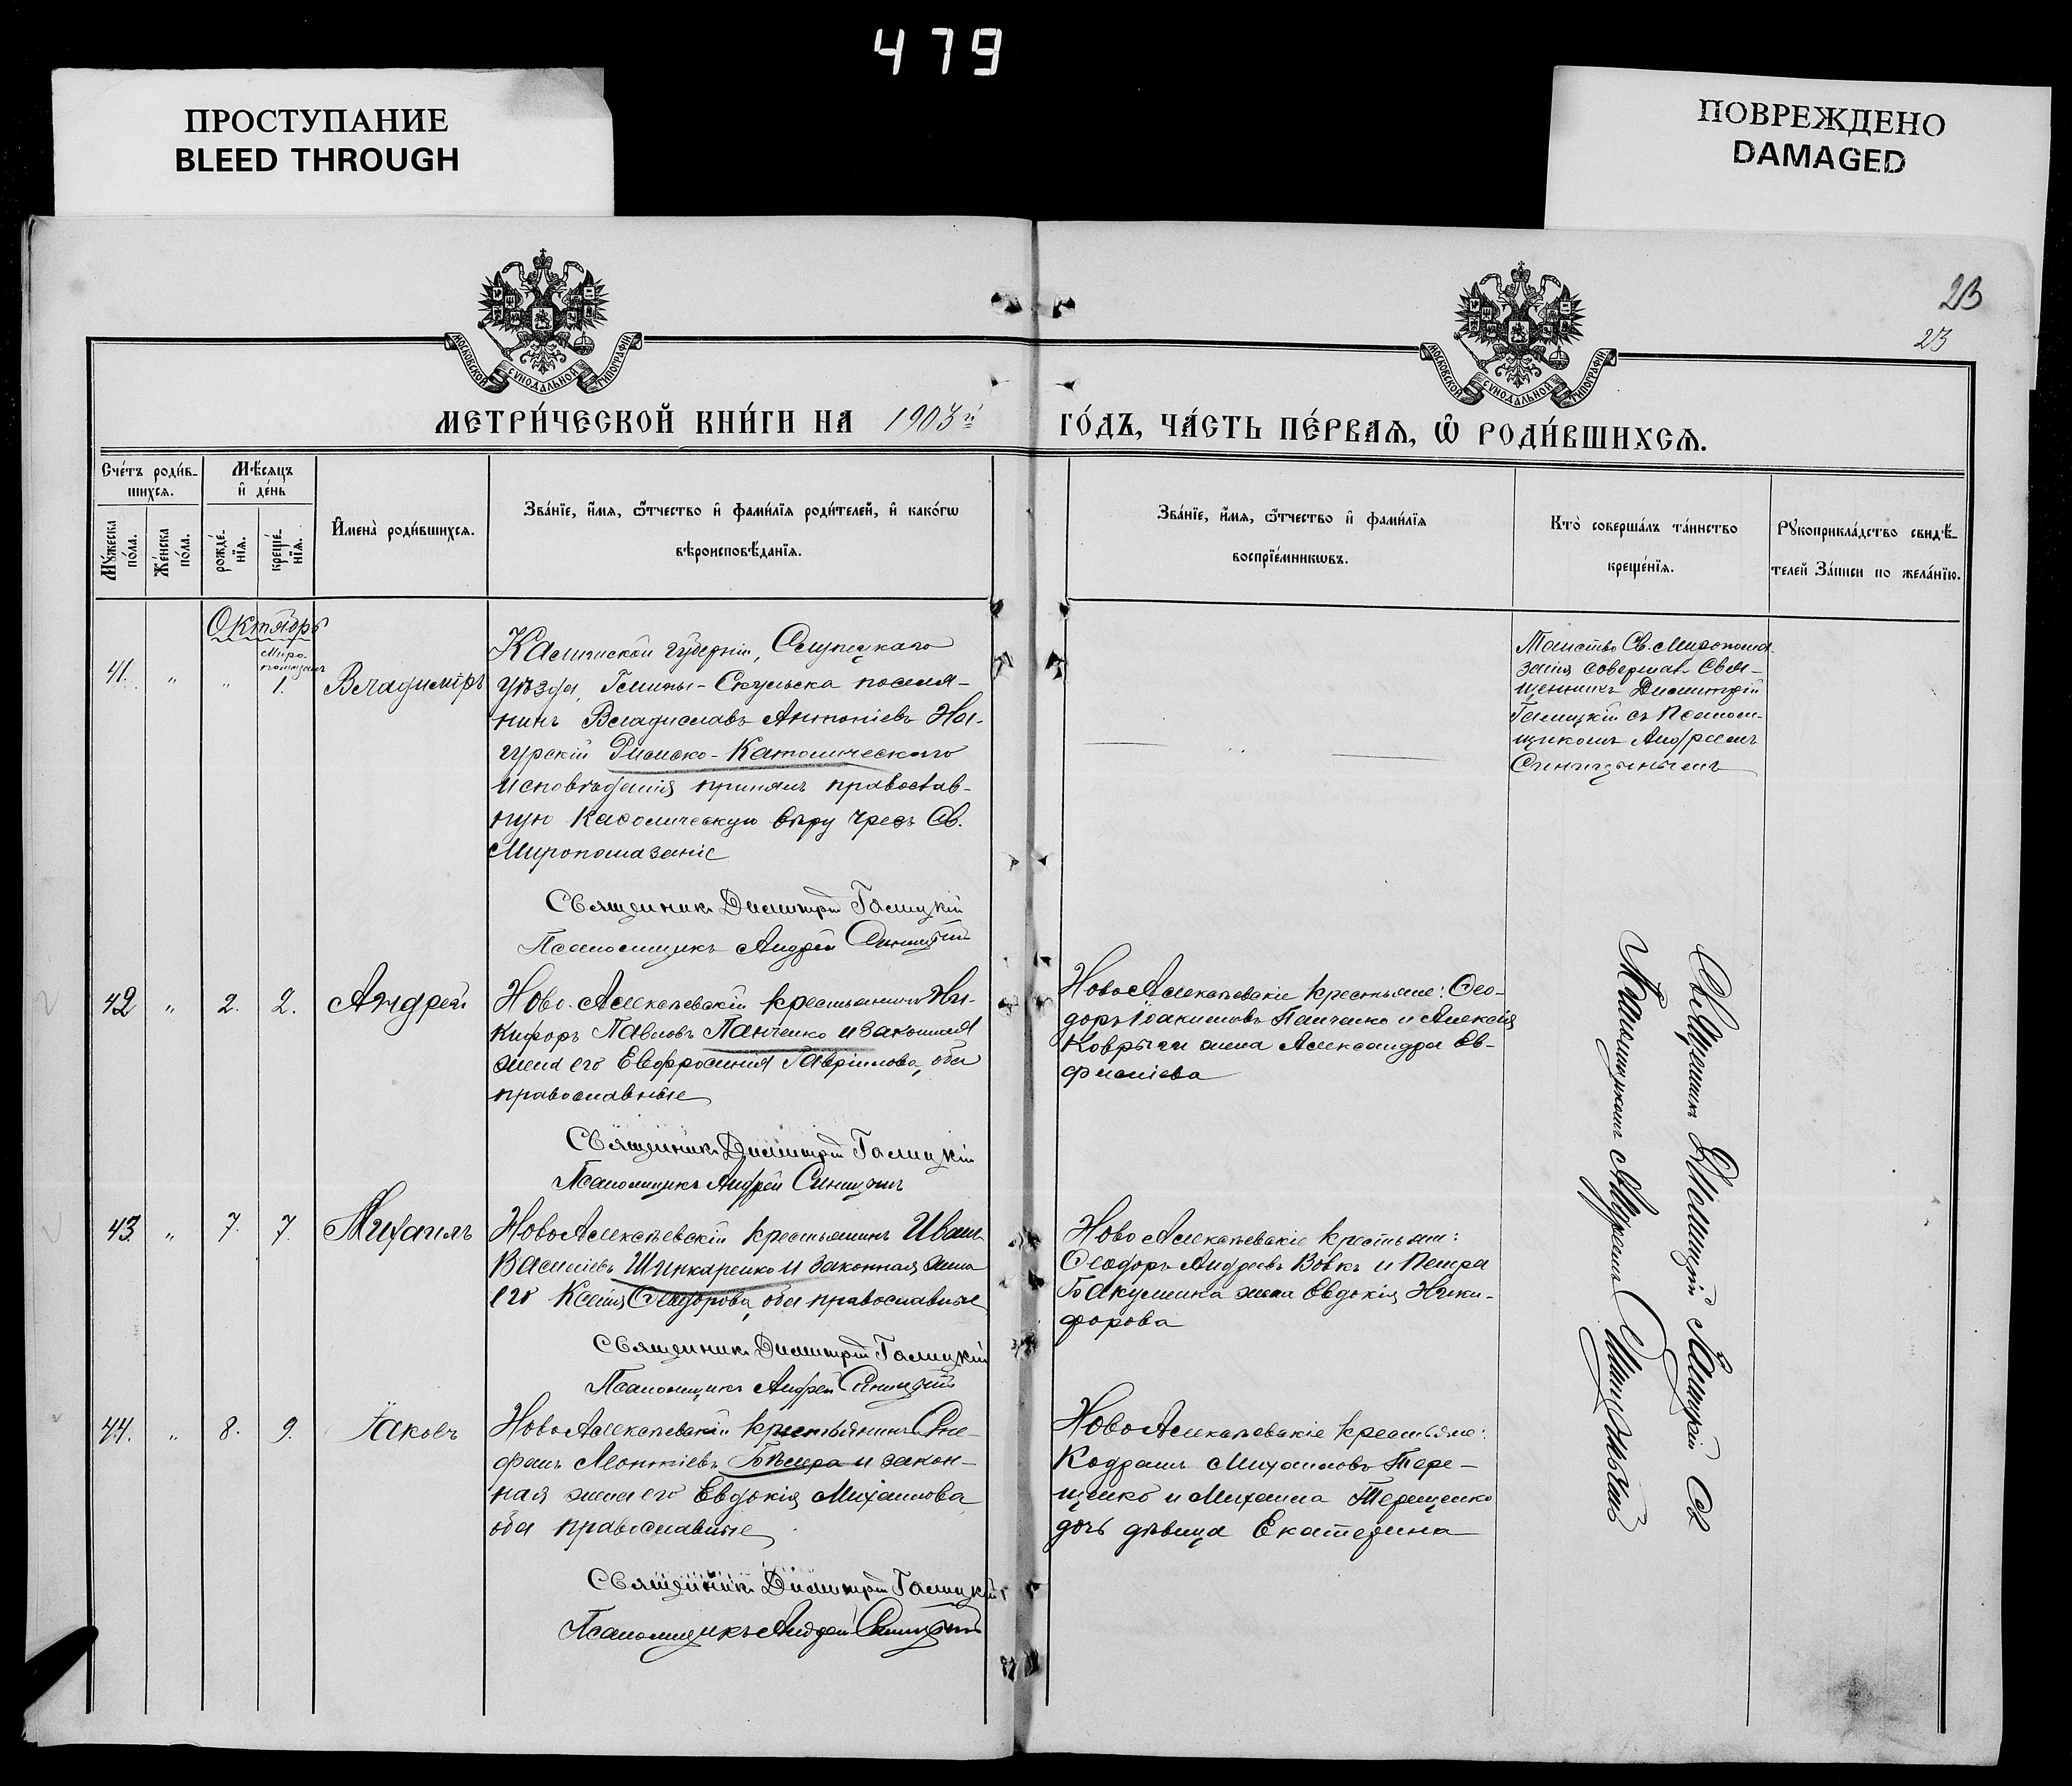 479
ПРОСТУПАНИЕ
BLEED THROUGH
ПОВРЕЖДЕНО
DAMAGED
23
23
МОСКОВСКОЙ СѴНОДАЛЬНОЙ ТИПОГРАФІИ
МОСКОВСКОЙ СѴНОДАЛЬНОЙ ТИПОГРАФІИ
МЕТРИ́ЧЕСКОЙ КНИ́ГИ НА 1903й ГО́ДЪ, ЧА́СТЬ ПЕ́РВАѦ, Ѡ҆ РОДИ́ВШИХСѦ.
Сче́тъ роди́в-
шихсѧ.
Мꙋ́жеска по́ла.
Же́нска по́ла.
Мѣ́сѧцъ
и҆ де́нь
рожде́-
нїѧ.
креще́-
нїѧ.
И҆мена̀ роди́вшихсѧ.
Зва́нїе, и҆́мѧ, ѻ҆́тчество и҆ фами́лїѧ роди́телей, и҆ како́гѡ
вѣроисповѣ́данїѧ.
Зва́нїе, и҆́мѧ, ѻ҆́тчество и҆ фами́лїѧ
воспрїе́мникѡвъ.
Кто̀ соверша́лъ та́инство
креще́нїѧ.
Рꙋкоприкла́дство свидѣ́-
телей За́писи по жела́нїю.
Октябрь
Миро-
помазанъ
41. " " 1. Владимiръ
губернiи, Слупецкаго
уѣзда, Гмины-Скульска поселя-
нинъ Владиславъ Антонiевъ
Римско-Католическаго
исповѣданiя принялъ православ-
ную каѳолическую вѣру чрезъ Св.
Миропомазанiе
Священникъ Димитрiй Галицкiй
Псаломщикъ Андрей
Таинство Св. Миропома-
занiя совершал Свя-
щенникъ Димитрiй
Галицкiй съ Псалом-
щикомъ Андреемъ
42 " 2. 2. Андрей
Ново-Алексѣевскiй крестьянинъ Ни-
кифоръ Павловъ Панченко и законная
жена его Евфросинiя Гаврiилова, оба
православные
Священникъ Димитрiй Галицкiй
Псаломщикъ Андрей
НовоАлексѣевскiе крестьяне: Ѳео-
доръ Iоакимовъ Панченко и Алексѣя
жена Александра Ев-
фимiева
43. " 7. 7. Михаилъ
НовоАлексѣевскiй крестьянинъ Иванъ
Василiевъ Шинкаренко и законная жена
его Ксенiя Ѳеодорова, оба православные
Священникъ Димитрiй Галицкiй
Псаломщикъ Андрей
НовоАлексѣевскiе крестьяне:
Ѳеодоръ Андреевъ Вовкъ и Петра
Бакуменка жена Евдокiя Ники-
форова
44. " 8. 9. Iаковъ
НовоАлексѣевскiй крестьянинъ Сте-
фанъ Леонтiевъ и закон-
ная жена его Евдокiя Михаилова
оба православные
Священникъ Димитрiй Галицкiй
Псаломщикъ Андрей
НовоАлексѣевскiе крестьяне:
Кодратъ Михаиловъ Тере-
щенко и Михаила Терещенко
дочь дѣвица Екатерина
Священникъ Димитрiй Галицкiй съ
Псаломщикомъ Андреемъ